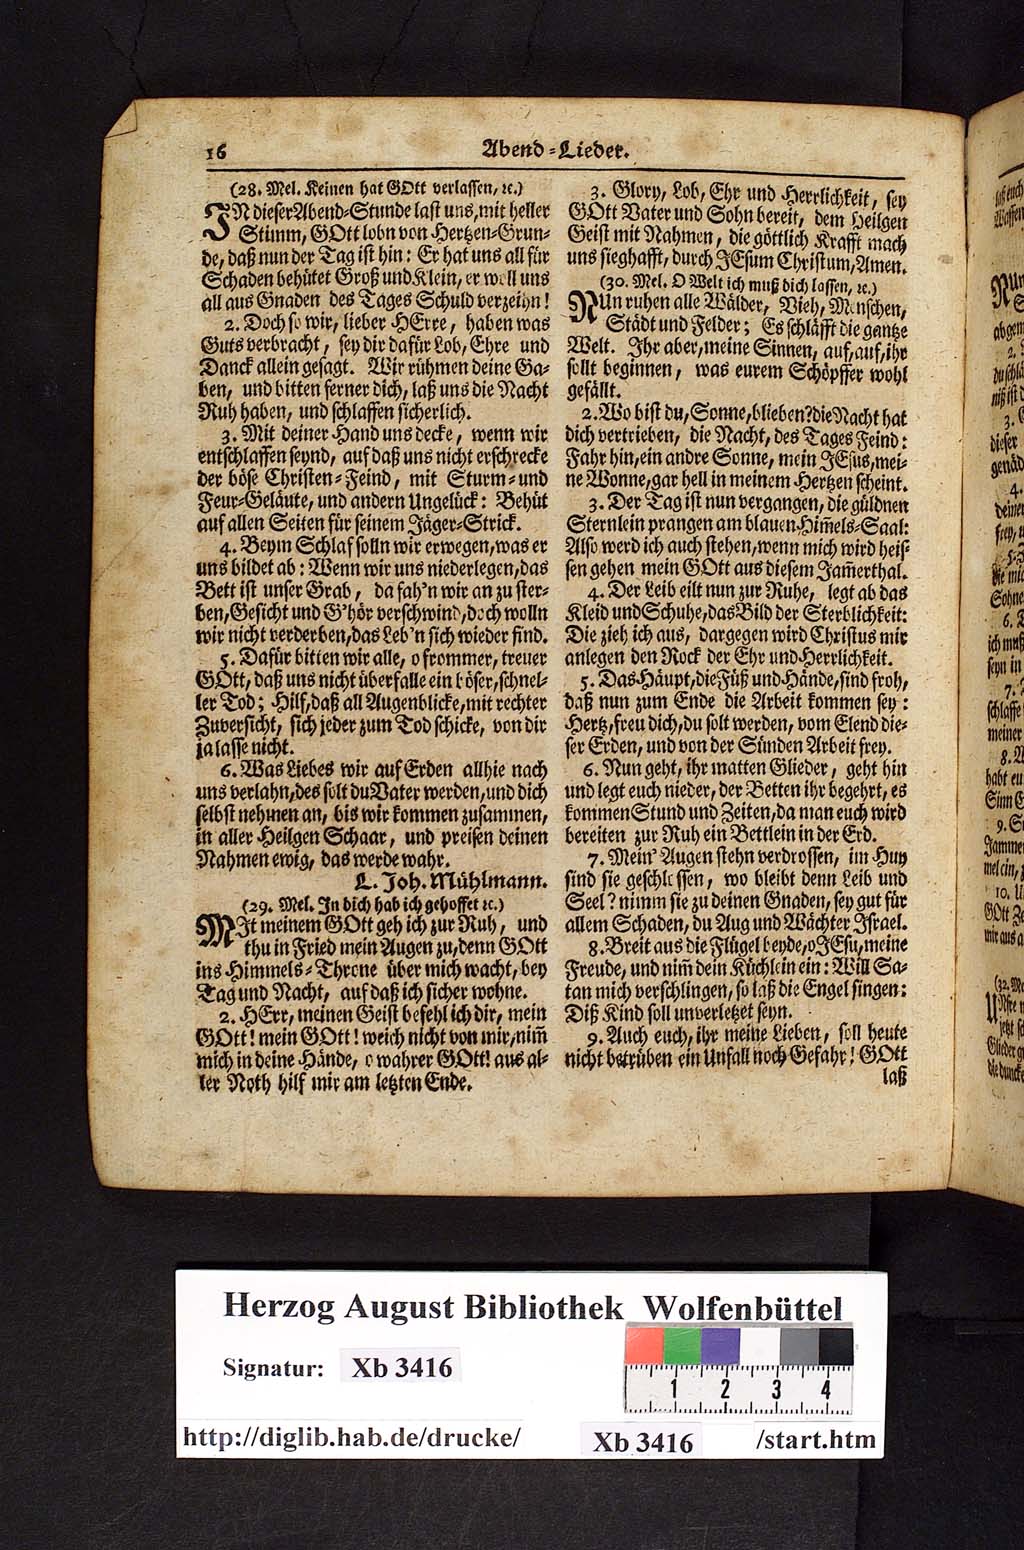 16
Abend-Lieder.
(28. Mel. Keinen hat GOtt verlassen, ꝛc.)
IN dieser Abend-Stunde last uns, mit heller
Stimm, GOtt lobn von Hertzen-Grun-
de, daß nun der Tag ist hin: Er hat uns all für
Schaden behütet Groß und Klein, er woll uns
all aus Gnaden des Tages Schuld verzeihn!
2. Doch so wir, lieber HErre, haben was
Guts verbracht, sey dir dafür Lob, Ehre und
Danck allein gesagt. Wir rühmen deine Ga-
ben, und bitten ferner dich, laß uns die Nacht
Ruh haben, und schlaffen sicherlich.
3. Mit deiner Hand uns decke, wenn wir
entschlaffen seynd, auf daß uns nicht erschrecke
der böse Christen-Feind, mit Sturm- und
Feur-Geläute, und andern Ungelück: Behüt
auf allen Seiten für seinem Jäger-Strick.
4. Beym Schlaf solln wir erwegen, was er
uns bildet ab: Wenn wir uns niederlegen, das
Bett ist unser Grab, da fah'n wir an zu ster-
ben, Gesicht und G'hör verschwind, doch wolln
wir nicht verderben, das Leb'n sich wieder find.
5. Dafür bitten wir alle, o frommer, treuer
GOtt, daß uns nicht überfalle ein böser, schnel-
ler Tod; Hilf, daß all Augenblicke, mit rechter
Zuversicht, sich jeder zum Tod schicke, von dir
ja lasse nicht.
6. Was Liebes wir auf Erden allhie nach
uns verlahn, des solt du Vater werden, und dich
selbst nehmen an, bis wir kommen zusammen,
in aller Heilgen Schaar, und preisen deinen
Nahmen ewig, das werde wahr.
L. Joh. Mühlmann.
(29. Mel. In dich hab ich gehoffet ꝛc.)
MIt meinem GOtt geh ich zur Ruh, und
thu in Fried mein Augen zu, denn GOtt
ins Himmels-Throne über mich wacht, bey
Tag und Nacht, auf daß ich sicher wohne.
2. HErr, meinen Geist befehl ich dir, mein
GOtt! mein GOtt! weich nicht von mir, nim̃
mich in deine Hände, o wahrer GOtt! aus al-
ler Noth hilf mir am letzten Ende.
3. Glory, Lob, Ehr und Herrlichkeit, sey
GOtt Vater und Sohn bereit, dem Heilgen
Geist mit Nahmen, die göttlich Krafft mach
uns sieghafft, durch JEsum Christum, Amen.
(30. Mel. O Welt ich muß dich lassen, ꝛc.)
NUn ruhen alle Wälder, Vieh, Menschen,
Städt und Felder; Es schläfft die gantze
Welt. Ihr aber, meine Sinnen, auf, auf, ihr
sollt beginnen, was eurem Schöpffer wohl
gefällt.
2. Wo bist du, Sonne, blieben? die Nacht hat
dich vertrieben, die Nacht, des Tages Feind:
Fahr hin, ein andre Sonne, mein JEsus, mei-
ne Wonne, gar hell in meinem Hertzen scheint.
3. Der Tag ist nun vergangen, die güldnen
Sternlein prangen am blauen Him̃els-Saal:
Also werd ich auch stehen, wenn mich wird heis-
sen gehen mein GOtt aus diesem Jam̃erthal.
4. Der Leib eilt nun zur Ruhe, legt ab das
Kleid und Schuhe, das Bild der Sterblichkeit:
Die zieh ich aus, dargegen wird Christus mir
anlegen den Rock der Ehr und Herrlichkeit.
5. Das Häupt, die Füß und Hände, sind froh,
daß nun zum Ende die Arbeit kommen sey:
Hertz, freu dich, du solt werden, vom Elend die-
ser Erden, und von der Sünden Arbeit frey.
6. Nun geht, ihr matten Glieder, geht hin
und legt euch nieder, der Betten ihr begehrt, es
kommen Stund und Zeiten, da man euch wird
bereiten zur Ruh ein Bettlein in der Erd.
7. Mein' Augen stehn verdrossen, im Huy
sind sie geschlossen, wo bleibt denn Leib und
Seel? nimm sie zu deinen Gnaden, sey gut für
allem Schaden, du Aug und Wächter Israel.
8. Breit aus die Flügel beyde, o JEsu, meine
Freude, und nim̃ dein Küchlein ein: Will Sa-
tan mich verschlingen, so laß die Engel singen:
Diß Kind soll unverletzet seyn.
9. Auch euch, ihr meine Lieben, soll heute
nicht betrüben ein Unfall noch Gefahr! GOtt
laß
Herzog August Bibliothek Wolfenbüttel
Signatur: Xb 3416
1 2 3 4
http://diglib.hab.de/drucke/ Xb 3416 /start.htm